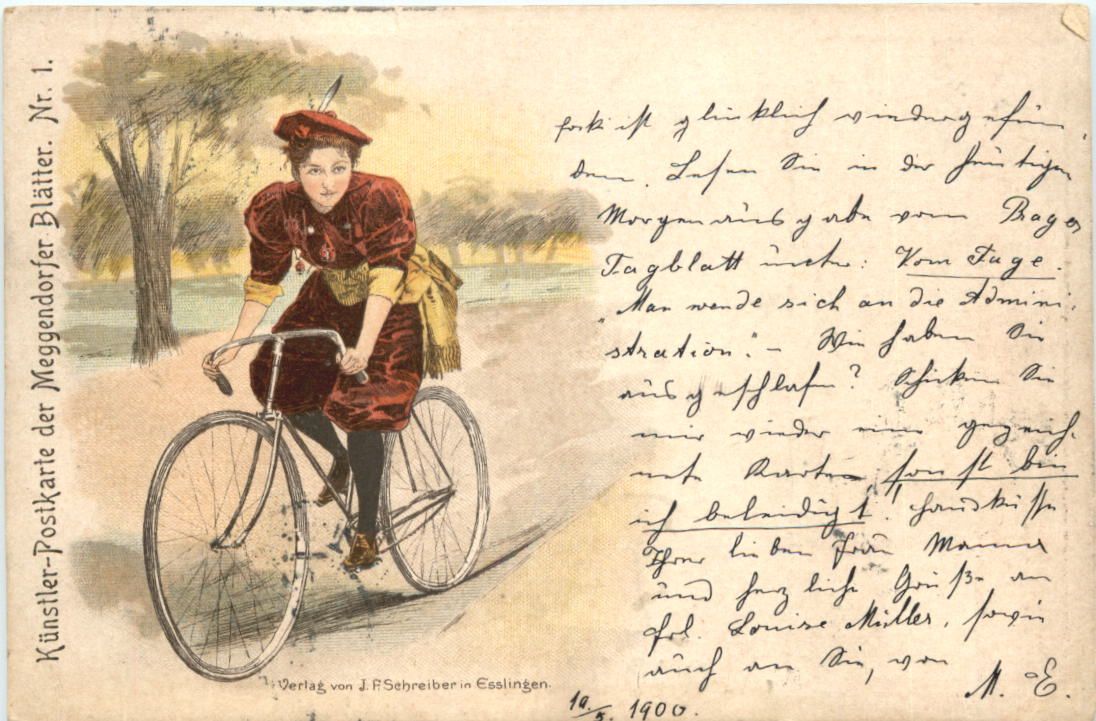 Künstler-Postkarte der Meggendorfer Blätter. Nr. 1.
ist glücklich wiedergefun-
den. Lesen Sie in der heutigen
Morgenausgabe vom Prager
Tagblatt unter: Vom Tage.
"Man wende sich an die Admini-
stration." – Wie haben Sie
ausgeschlafen? Schicken Sie
mir wieder eine gezeich-
nete Karte sonst bin
ich beleidigt! Handküsse
Ihrer lieben Frau Mama
und herzliche Grüße an
Frl. Louise Müller, sowie
auch an Sie, von
M. E.
1900.
Verlag von J. F. Schreiber in Esslingen.